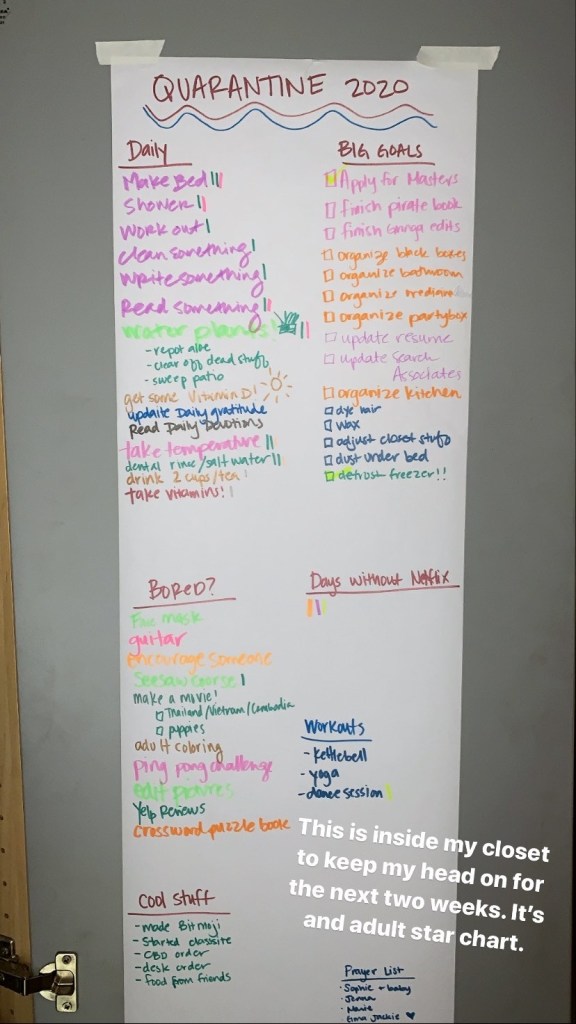 QUARANTINE 2020
Daily
Make Bed
Shower
Work out
clean something
Write something
Read something
water plants!
- repot aloe
- clear off dead stuff
- sweep patio
get some Vitamin D!
update Daily gratitude
Read Daily Devotions
take temperature
dental rinse/salt water
drink 2 cups/tea!
take vitamins!
BIG GOALS
Apply for Masters
finish pirate book
finish Ganga edits
organize black boxes
organize bathroom
organize
organize party box
update resume
update search
Associates
organize kitchen
dye hair
wax
adjust closet stuff
dust under bed
defrost freezer!!
BORED?
Face mask
guitar
encourage someone
Seesaw course
make a movie!
Thailand/Vietnam/Cambodia
puppies
adult coloring
ping pong challenge
edit pictures
Yelp Reviews
crossword puzzle book
Days without Netflix
Workouts
- Kettlebell
- yoga
- dance session
This is inside my closet
to keep my head on for
the next two weeks. It's
and adult star chart.
COOL STUFF
- made Bitmoji
- Started classsite
- CBD order
- desk order
- food from friends
Prayer List
· Sophie + baby
· Jenna
· Ema Jackie ♥